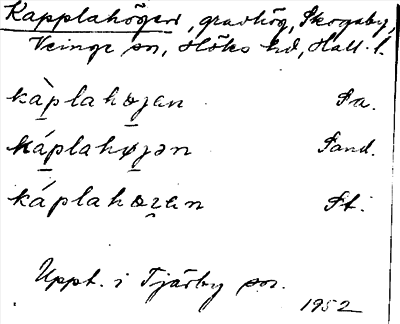 Kapplahögen, gravhög, Skogaby,
Veinge sn, Höks hd, Hall. l.
kàplahɵjen Sa.
káplahøjən Sand.
káplahɵʒen St.
Uppt. i Tjärby sn.
1952